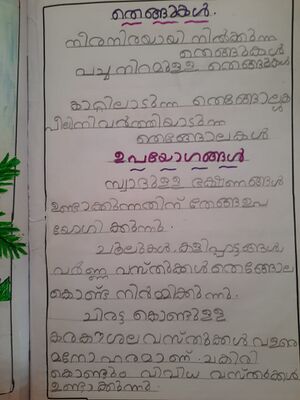 തെങ്ങുകൾ.
നിരനിരയായി നിൽക്കുന്ന
തെങ്ങുകൾ
പച്ച നിറമുള്ള തെങ്ങുകൾ
കാറ്റിലാടുന്ന തെങ്ങോലകൾ
പീലിനിവർത്തിയാടുന്ന
തെങ്ങോലകൾ
ഉപയോഗങ്ങൾ
സ്വാദുള്ള ഭക്ഷണങ്ങൾ
ഉണ്ടാക്കുന്നതിന് തേങ്ങ ഉപ
യോഗിക്കുന്നു.
ചൂലുകൾ, കളിപ്പാട്ടങ്ങൾ
വർണ്ണ വസ്തുക്കൾ തെങ്ങോല
കൊണ്ട് നിർമ്മിക്കുന്നു.
ചിരട്ട കൊണ്ടുള്ള
കരകൗശല വസ്തുക്കൾ വളരെ
മനോഹരമാണ്. ചകിരി
കൊണ്ടും വിവിധ വസ്തുക്കൾ
ഉണ്ടാക്കുന്നു.